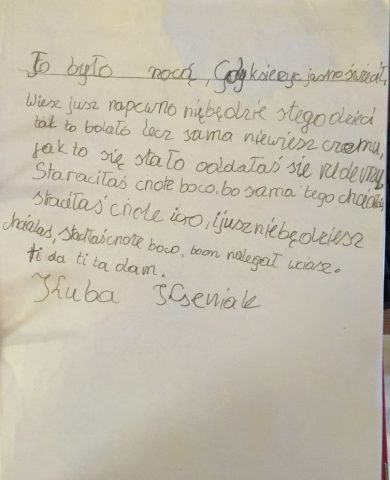 To było nocą, Gdy księzyc jasno świecił,
Wiesz jusz napewno niebędzie stego dzieci
tak to bolało lecz sama niewiesz czemu,
jak to się stało oddałaś się
Straciłaś cnote boco, bo sama tego chciałaś
staciłaś cnole ico, ijuszniebędziesz
chciałaś, stadłaś cnote boco, boon nalegał wciasz.
ti da ti ta dam.
Kuba Kseniak